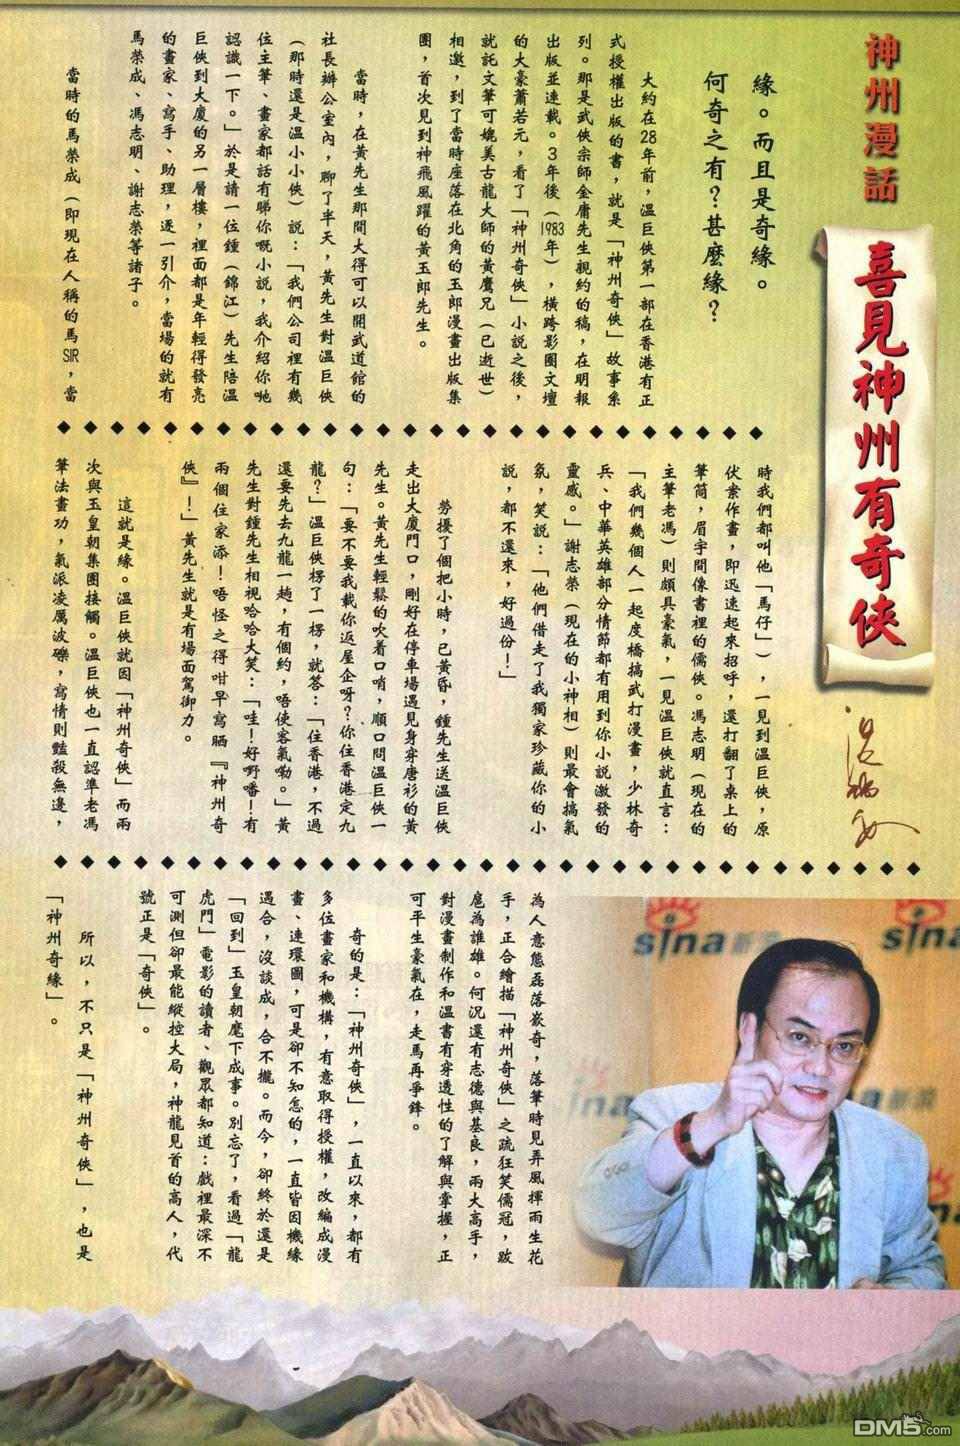 神州漫話
喜見神州有奇俠
緣。而且是奇緣。
何奇之有?甚麼緣?
大約在28年前,溫巨俠第一部在香港有正
式授權出版的書,就是「神州奇俠」故事系
列。那是武俠宗師金庸先生親約的稿,在明報
出版並連載。3年後(1983年),橫跨影圈文壇
的大豪蕭若元,看了「神州奇俠」小說之後,
就託文筆可媲美古龍大師的黃鷹兄(已逝世)
相邀,到了當時座落在北角的玉郎漫畫出版集
團,首次見到神飛風躍的黃玉郎先生。
當時,在黃先生那間大得可以開武道館的
社長辦公室內,聊了半天,黃先生對溫巨俠
(那時還是溫小小俠)說:「我們公司裡有幾
位主筆、畫家都話有睇你嘅小說,我介紹你哋
認識一下。」於是請一位鍾(錦江)先生陪溫
巨俠到大廈的另一層樓,裡面都是年輕得發亮
的畫家、寫手、助理,逐一引介,當場的就有
馬榮成、馮志明、謝志榮等諸子。
當時的馬榮成(即現在人稱的馬SIR,當
時我們都叫他「馬仔」),一見到溫巨俠,原
伏案作畫,即迅速起來招呼,還打翻了桌上的
筆筒,眉宇間像書裡的儒俠。馮志明(現在的
主筆老馮)則頗具豪氣,一見溫巨俠就直言:
「我們幾個人一起度橋搞武打漫畫,少林奇
兵、中華英雄部分情節都有用到你小說激發的
靈感。」謝志榮(現在的小神相)則最會搞氣
氛,笑說:「他們借走了我獨家珍藏你的小
說,都不還來,好過份!」
勞擾了個把小時,已黃昏,鍾先生送溫巨俠
走出大廈門口,剛好在停車場遇見身穿唐衫的黃
先生。黃先生輕鬆的吹着口哨,順口問溫巨俠一
句:「要不要我載你返屋企呀?你住香港定九
龍?」溫巨俠楞了一楞,就答:「住香港,不過
還要先去九龍一趟,有個約,唔使客氣嘞。」黃
先生對鍾先生相視哈哈大笑:「哇!好嘢噃!有
兩個住家添!唔怪之得咁早寫晒『神州奇
俠』!」黃先生就是有場面駕御力。
這就是緣。溫巨俠就因「神州奇俠」而兩
次與玉皇朝集團接觸。溫巨俠也一直認準老馮
筆法畫功,氣派凌厲波磔,寫情則豔殺無邊,
為人意態磊落嶔奇,落筆時見弄風揮雨生花
手,正合繪描「神州奇俠」之疏狂笑儒冠,跋
扈為誰雄。何況還有志德與基良,兩大高手,
對漫畫制作和溫書有穿透性的了解與掌握,正
可平生豪氣在,走馬再爭鋒。
奇的是:「神州奇俠」,一直以來,都有
多位畫家和機構,有意取得授權,改編成漫
畫、連環圖,可是卻不知怎的,一直皆因機緣
遇合,沒談成,合不攏。而今,卻終於還是
「回到」玉皇朝麾下成事。別忘了,看過「龍
虎門」電影的讀者、觀眾都知道:戲裡最深不
可測但卻最能縱控大局,神龍見首的高人,代
號正是「奇俠」。
所以,不只是「神州奇俠」,也是
「神州奇緣」。
sina新浪
sina
sina新浪
DM5.com